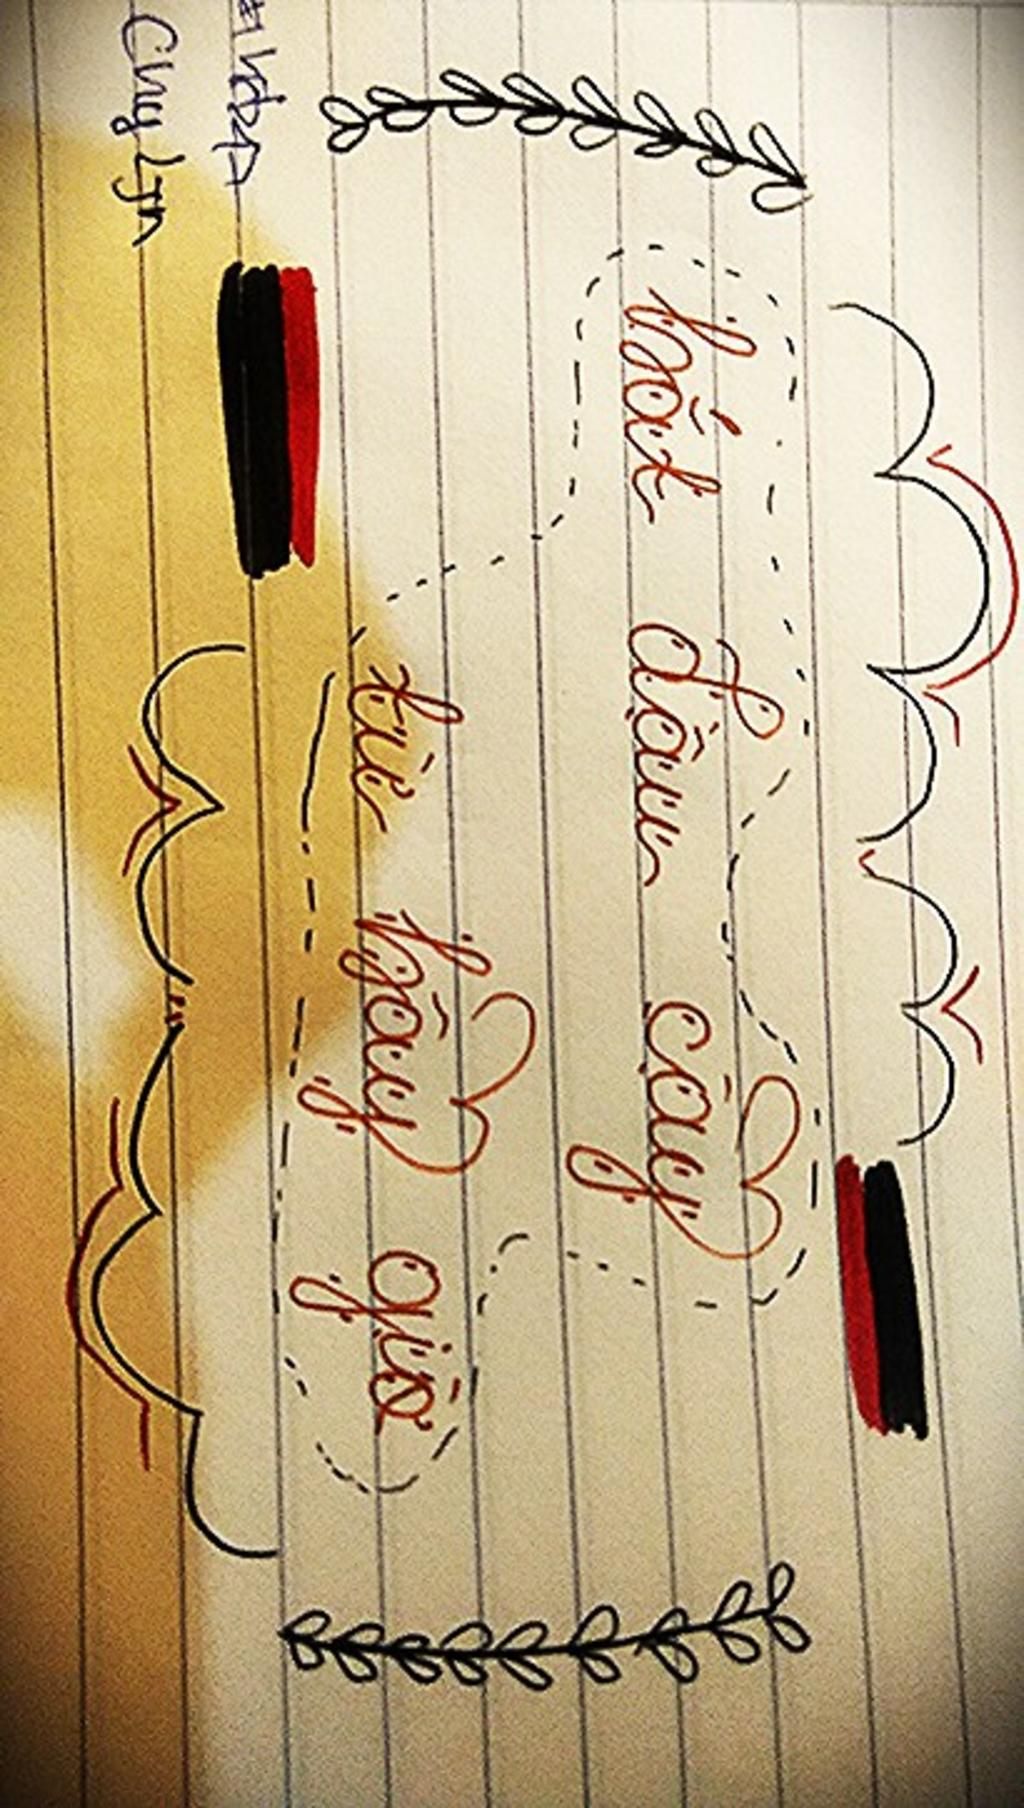 bắt đầu cày
từ bây giờ
Chy Lyn